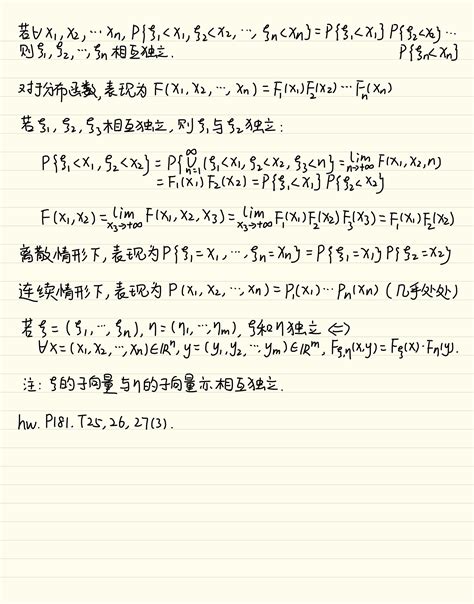 若∀x₁,x₂,⋯xₙ, P{ξ₁<x₁,ξ₂<x₂,⋯,ξₙ<xₙ}=P{ξ₁<x₁}P{ξ₂<x₂}⋯
P{ξₙ<xₙ}
则ξ₁,ξ₂,⋯,ξₙ相互独立.
对于分布函数,表现为F(x₁,x₂,⋯,xₙ)=F₁(x₁)F₂(x₂)⋯Fₙ(xₙ)
若ξ₁,ξ₂,ξ₃相互独立,则ξ₁与ξ₂独立:
P{ξ₁<x₁,ξ₂<x₂}=P{⋃ₙ₌₁^∞(ξ₁<x₁,ξ₂<x₂,ξ₃<n}=lim_{n→+∞}F(x₁,x₂,n)
=F₁(x₁)F₂(x₂)=P{ξ₁<x₁}P{ξ₂<x₂}
F(x₁,x₂)=lim_{x₃→+∞}F(x₁,x₂,x₃)=lim_{x₃→+∞}F₁(x₁)F₂(x₂)F₃(x₃)=F₁(x₁)F₂(x₂)
离散情形下,表现为P{ξ₁=x₁,⋯,ξₙ=xₙ}=P{ξ₁=x₁}P{ξ₂=x₂}
连续情形下,表现为P(x₁,x₂,⋯,xₙ)=P₁(x₁)⋯Pₙ(xₙ)(几乎处处)
若ξ=(ξ₁,⋯,ξₙ),η=(η₁,⋯,ηₘ),ξ和η独立⇔
∀x=(x₁,x₂,⋯,xₙ)∈ℝⁿ,y=(y₁,y₂,⋯,yₘ)∈ℝᵐ,F_{ξ,η}(x,y)=F_ξ(x)·F_η(y).
注:ξ的子向量与η的子向量亦相互独立.
hw. P181. T25,26,27(3).